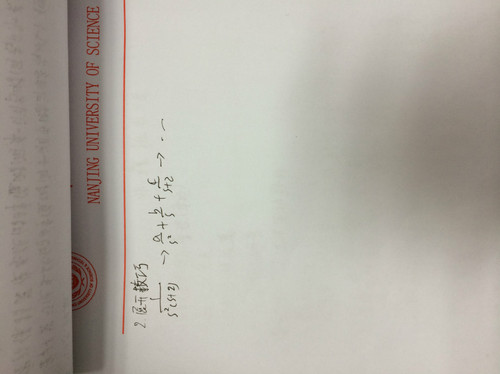 NANJING UNIVERSITY OF SCIENCE
2.展开技巧
1/(s²(s+2)) → a/s² + b/s + c/(s+2) → ...